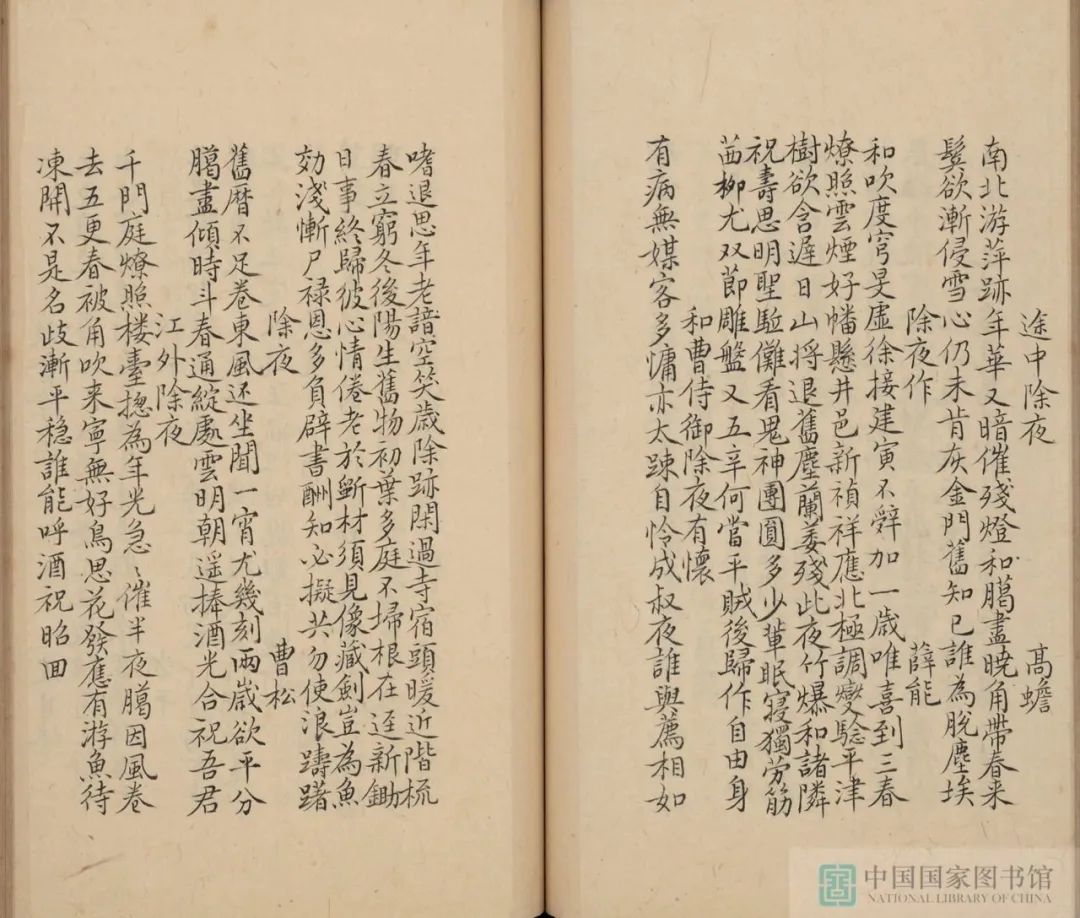 途中除夜 高蟾
南北游萍跡年華又暗催殘燈和臈盡曉角帶春来
鬂欲漸侵雪心仍未肯灰金門舊知已誰為脫塵埃
除夜作 薛能
和吹度穹旻虛徐接建寅不辤加一歲唯喜到三春
燎照雲煙好幡懸井邑新禎祥應北極調變驗平津
樹欲含遲日山將退舊塵蘭萎殘此夜竹爆和諸隣
祝壽思明聖驅儺看鬼神團圓多少輩眠寝獨劳筋
茜柳尤双節雕盤又五辛何當平賊後歸作自由身
和曹侍御除夜有懷
有病無媒客多慵亦太踈自怜成叔夜誰與薦相如
嗜退思年老諳空笑歲除跡閑過寺宿頭暖近階梳
春立窮冬後陽生舊物初葉多庭不埽根在迳新鋤
日事終歸彼心情倦老於斵材須見像藏劍豈為魚
効淺慚尸禄恩多負辟書酬知必擬共勿使浪躊躇
除夜 曹松
舊曆不足卷東風还坐聞一宵尤幾刻兩歲欲平分
臈盡傾時斗春通綻處雲明朝遥捧酒光合祝吾君
江外除夜
千門庭燎照楼臺揔為年光急〻催半夜臈因風卷
去五更春被角吹来寧無好鳥思花發應有游魚待
凍開不是名歧漸平穏誰能呼酒祝昭回
中国国家图书馆
NATIONAL LIBRARY OF CHINA